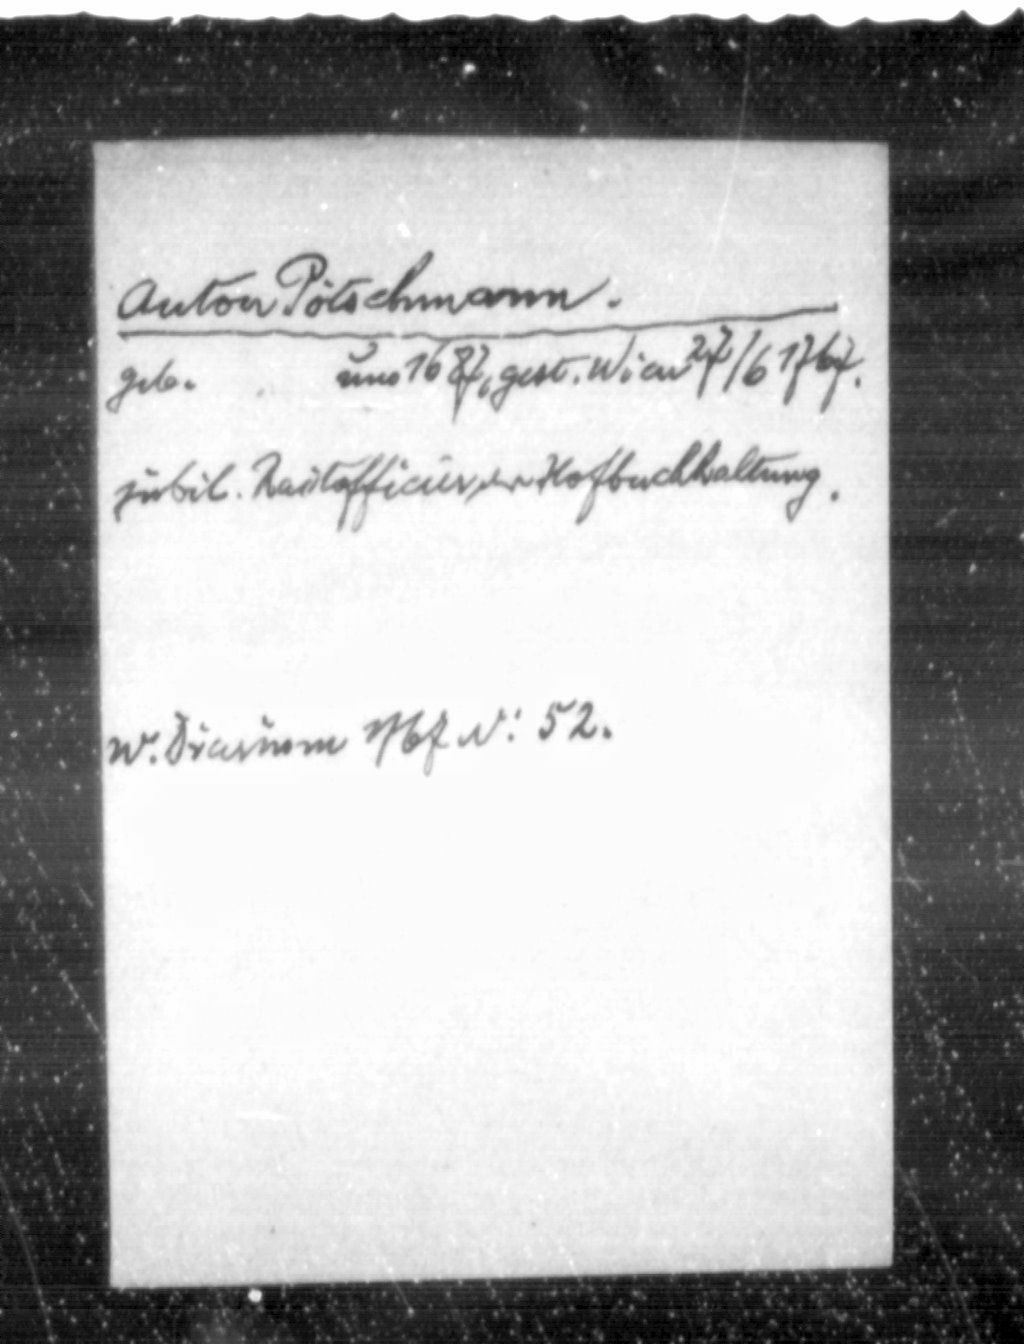 Anton Pötschmann.
geb. um 1687, gest. Wien 27/6 1767.
jubil. Raitofficier der Hofbuchhaltung.
W. Diarium 1767 N: 52.